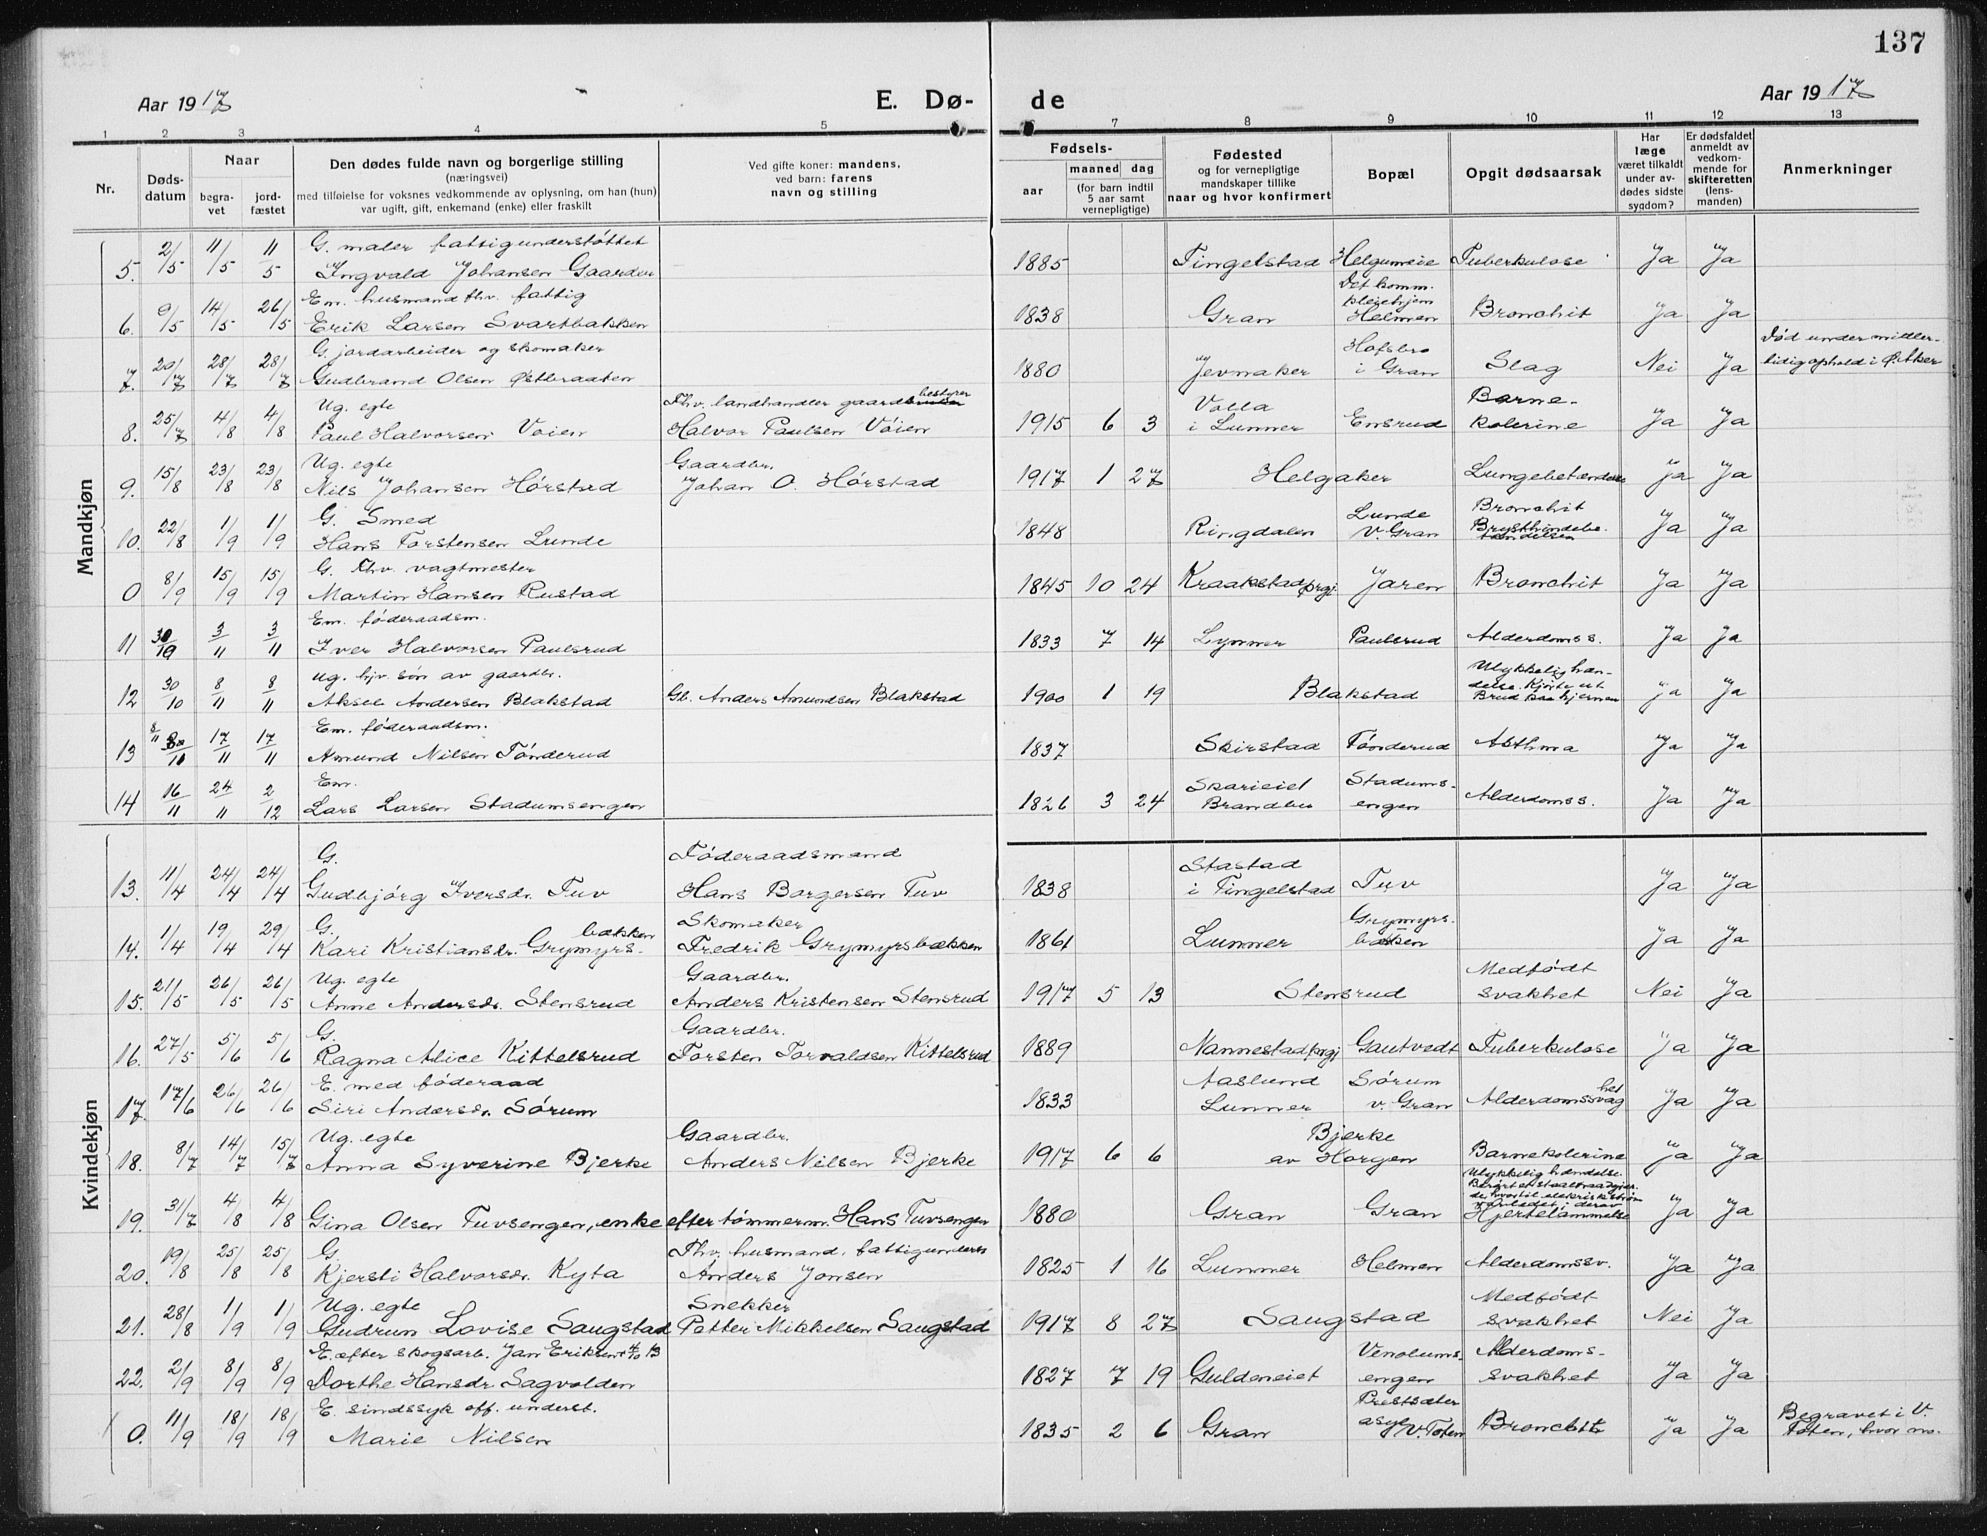 137
Aar 1917
E. Dø-
de
Aar 1917
1 2 3 4 5 6 7 8 9 10 11 12 13
Nr.
Døds-
datum
Naar
begra-
vet
jord-
fæstet
Den dødes fulde navn og borgerlige stilling
(næringsvei)
med tilføielse for voksnes vedkommende av oplysning, om han (hun)
var ugift, gift, enkemand (enke) eller fraskilt
Ved gifte koner: mandens,
ved barn: farens
navn og stilling
Fødsels-
aar
maaned dag
(for barn indtil
5 aar samt
vernepligtige)
Fødested
og for vernepligtige
mandskaper tillike
naar og hvor konfirmert
Bopæl
Opgit dødsaarsak
Har
læge
været tilkaldt
under av-
dødes sidste
sygdom?
Er dødsfaldet
anmeldt av
vedkom-
mende for
skifteretten
(lens-
manden)
Anmerkninger
Mandkjøn
G. maler fattigunderstøttet
5. 2/5 11/5 11/5 Ingvald Johansen Gaarder 1885 Tingelstad Helgumeie Tuberkulose Ja Ja
Em. husmand thv. fattig Det komm. pleiehjem
6. 9/5 14/5 26/5 Erik Larsen Svartbakken 1838 Gran Helmen Bronchit Ja Ja
G. jordarbeider og skomaker Hofsbro Død under midler-
7. 20/7 28/7 28/7 Gudbrand Olsen Østbraaten 1880 Jevnaker i Gran Slag Nei Ja tidig ophold i Ø. Aker
Ug. egte Thv. landhandler gaardbestyrer Volla Barne-
8. 25/7 4/8 4/8 Paul Halvorsen Voien Halvor Paulsen Vøien 1915 6 3 i Lunner Ensrud kolerine Ja Ja
Ug. egte Gaardbr.
9. 15/8 23/8 23/8 Nils Johansen Hørstad Johan O. Hørstad 1917 1 27 Helgaker Lungebetændelse Ja Ja
G. Smed Lunde Bronchit
10. 22/8 1/9 1/9 Hans Torstensen Lunde 1848 Ringdalen v. Gran Brysthindebe-tændelsen Ja Ja
G. Thv. vagtmester
0 8/9 15/9 15/9 Martin Hansen Rustad 1845 10 24 Kraakstad prgj. Jaren Bronchit Ja Ja
Em. føderaadsm.
11 30/10 3/11 3/11 Iver Halvorsen Paulsrud 1833 7 14 Lynner Paulsrud Alderdomss. Ja Ja
Ug. hjv. søn av gaardbr. Ulykkelig hæn-
12 30/10 8/11 8/11 Aksel Andersen Blakstad Gb. Anders Amundsen Blakstad 1900 1 19 Blakstad delse. Kjørte ut Brud paa hjernen Ja Ja
Em. føderaadsm.
13 8/11 17/11 17/11 Amund Nilsen Tønderud 1837 Skirstad Tønderud Asthma Ja Ja
Em. Skarieiet Stadums-
14 16/11 24/11 2/12 Lars Larsen Stadumsengen 1826 3 24 Brandbu engen Alderdomss. Ja Ja
Kvindekjøn
G. Føderaadsmand Stastad
13. 11/4 24/4 24/4 Gudbjørg Iversdr. Tuv Hans Borgersen Tuv 1838 i Tingelstad Tuv Ja Ja
G. bækken Skomaker Grymyrs-
14. 1/4 19/4 29/4 Kari Kristiansdr. Grymyrs- Fredrik Grymyrsbækken 1861 Lunner bækken Ja Ja
Ug. egte Gaardbr. Medfødt
15. 21/5 26/5 26/5 Anne Andersdr. Stensrud Anders Kristensen Stensrud 1917 5 13 Stensrud svakhet Nei Ja
G. Gaardbr.
16. 27/5 5/6 5/6 Ragna Alice Kittelsrud Torsten Torvaldsen Kittelsrud 1889 Nannestad prgj Gautvedt Tuberkulose Ja Ja
E. med føderaad Aaslund Sørum
17. 17/6 26/6 26/6 Siri Andersdr. Sørum 1833 Lunner v. Gran Alderdomssvaghet Ja Ja
Ug. egte Gaardbr. Bjerke
18. 8/7 14/7 15/7 Anna Syverine Bjerke Anders Nilsen Bjerke 1917 6 6 av Horgen Barnekolerine Ja Ja
Ulykkelig hændelse.
19. 31/7 4/8 4/8 Gina Olsen Tuvsengen, enke efter tømmerm. Hans Tuvsengen 1880 Gran Gran Hjertelammelse Ja Ja
G. Thv. husmand, fattigunders
20. 19/8 25/8 25/8 Kjersti Halvorsdr. Kyta Anders Jonsen 1825 1 16 Lunner Helmen Alderdomssv. Ja Ja
Ug. egte Snekker Medfødt
21. 28/8 1/9 1/9 Gudrun Lovise Saugstad Petter Mikkelsen Saugstad 1917 8 27 Saugstad svakhet Nei Ja
E. efter skogsarb. Jan Eriksen + 4/10 13 Venolums- Alderdoms-
22. 2/9 8/9 8/9 Dorthe Hansdr Sagvolden 1827 7 19 Guldeneiet engen svakhet Ja Ja
E. sindssyk off. underst. Prestsæter Begravet i V.
0. 11/9 18/9 18/9 Marie Nilsen 1835 2 6 Gran asyl V. Toten Bronchit Ja Ja Toten, hvor no.